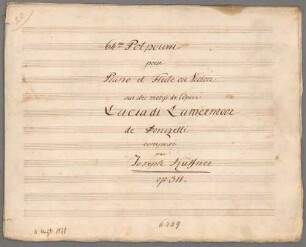 64me Potpourri
pour
Piano et Flute ou Violon
sur des motifs de l'opera
Lucia di Lamermoor
de Donizetti
composé
par
Joseph Küffner
op. 311.
6429